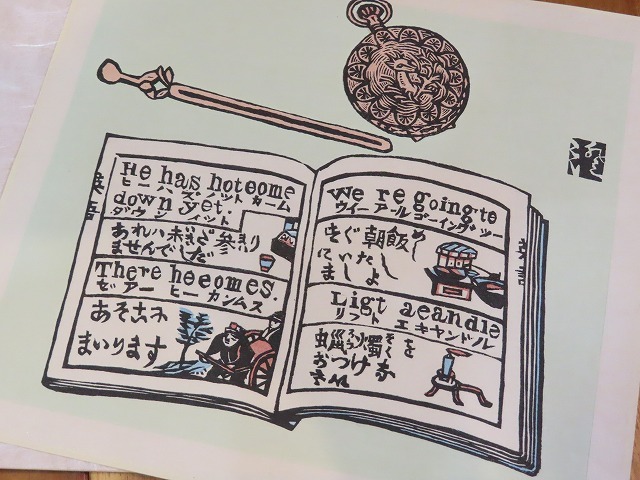 He has hoteome
ヒー ハズ ノット カーム
down yet
ダウン イット
あれハ未だ参り
ませんでした
There heeomes.
ゼアー ヒー カンムス
あそこれ
まいります
英語
We re going te
ウイーアールゴーイングツー
すぐ朝飯
ていたし
ましよ
Ligt aeandle
リフト エキヤンドル
蝋燭を
おつけ
英語